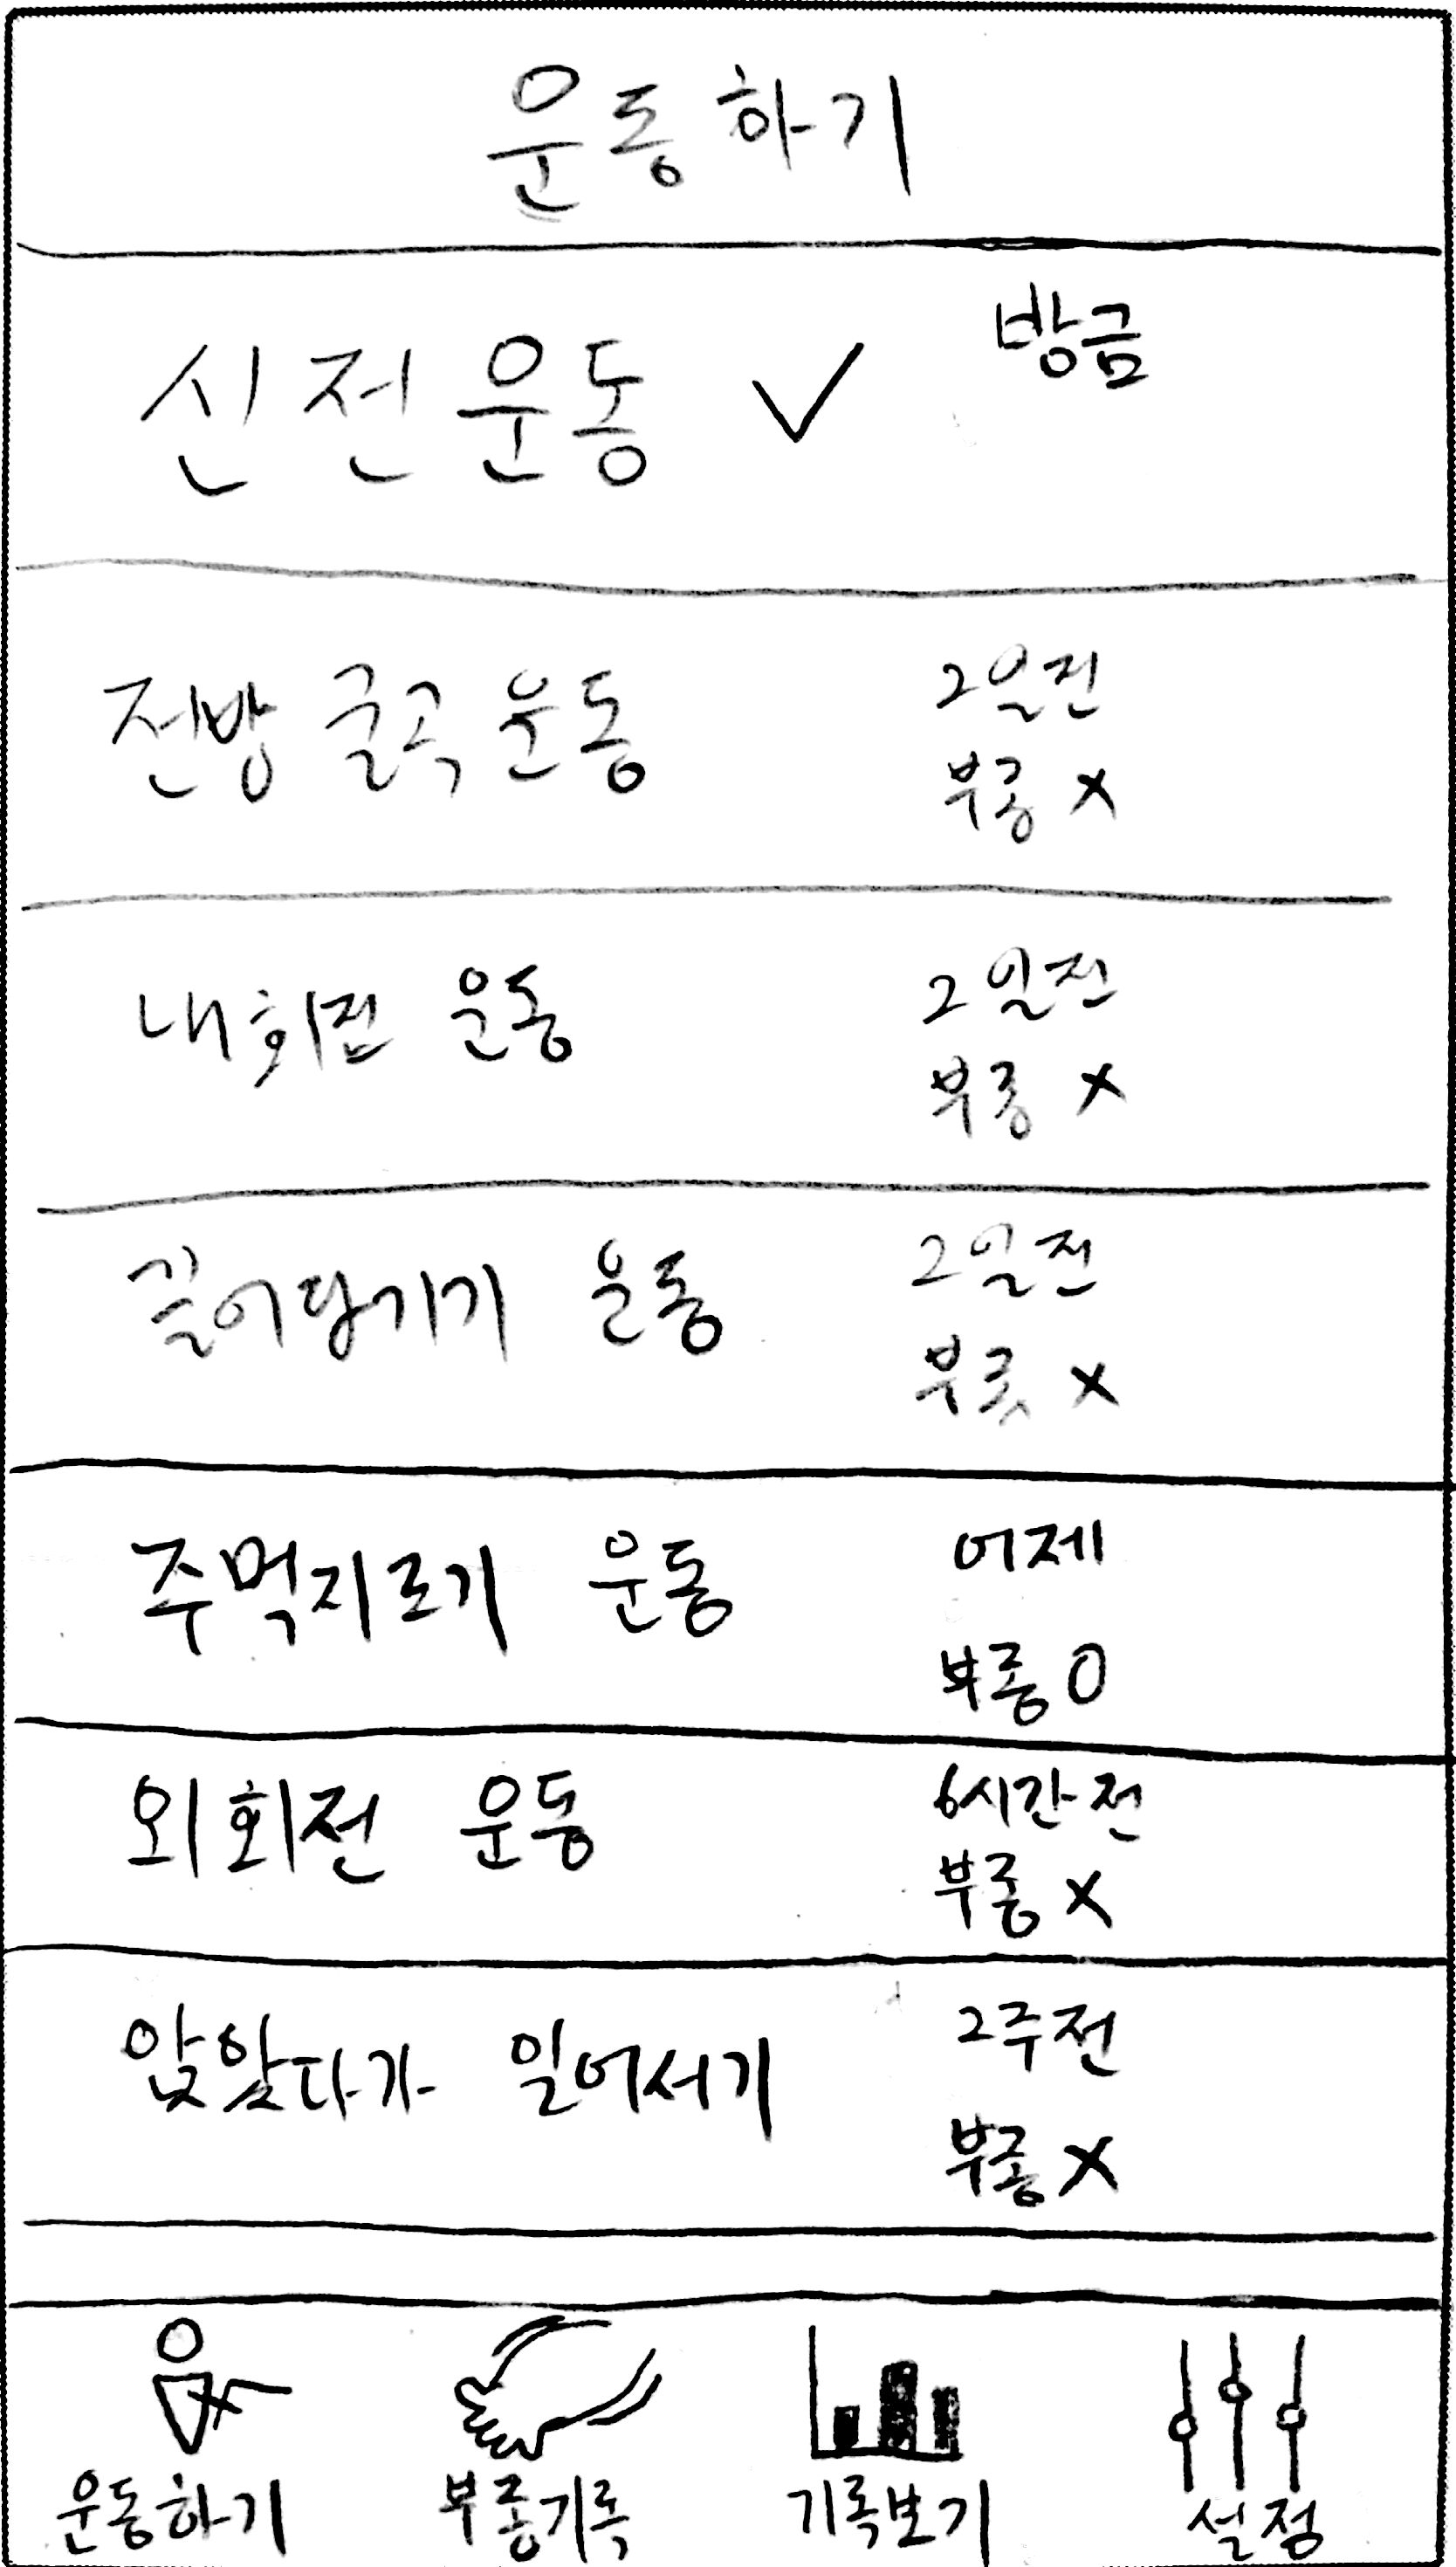 운동하기
신전운동 ✓ 방금
전방 굴곡 운동 2일전
부종 X
내회전 운동 2일전
부종 X
끌어당기기 운동 2일전
부종 X
주먹지르기 운동 어제
부종 O
외회전 운동 6시간전
부종 X
앉았다가 일어서기 2주전
부종 X
운동하기 부종기록 기록보기 설정